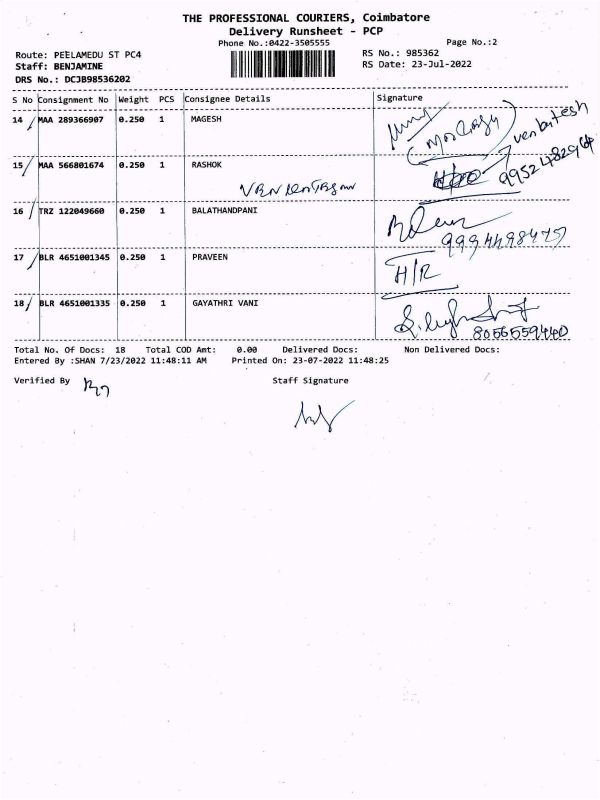 THE PROFESSIONAL COURIERS, Coimbatore
Delivery Runsheet - PCP
Phone No.:0422-3505555
Page No.:2
Route: PEELAMEDU ST PC4
RS No.: 985362
Staff: BENJAMINE
RS Date: 23-Jul-2022
DRS No.: DCJB98536202
S No Consignment No Weight PCS Consignee Details Signature
14 MAA 289366907 0.250 1 MAGESH
venkatesh
15 MAA 566801674 0.250 1 RASHOK
9952482964
16 TRZ 122049660 0.250 1 BALATHANDPANI
9994498475
17 BLR 4651001345 0.250 1 PRAVEEN H/R
18 BLR 4651001335 0.250 1 GAYATHRI VANI
8056559440
Total No. Of Docs: 18 Total COD Amt: 0.00 Delivered Docs: Non Delivered Docs:
Entered By :SHAN 7/23/2022 11:48:11 AM Printed On: 23-07-2022 11:48:25
Verified By Staff Signature